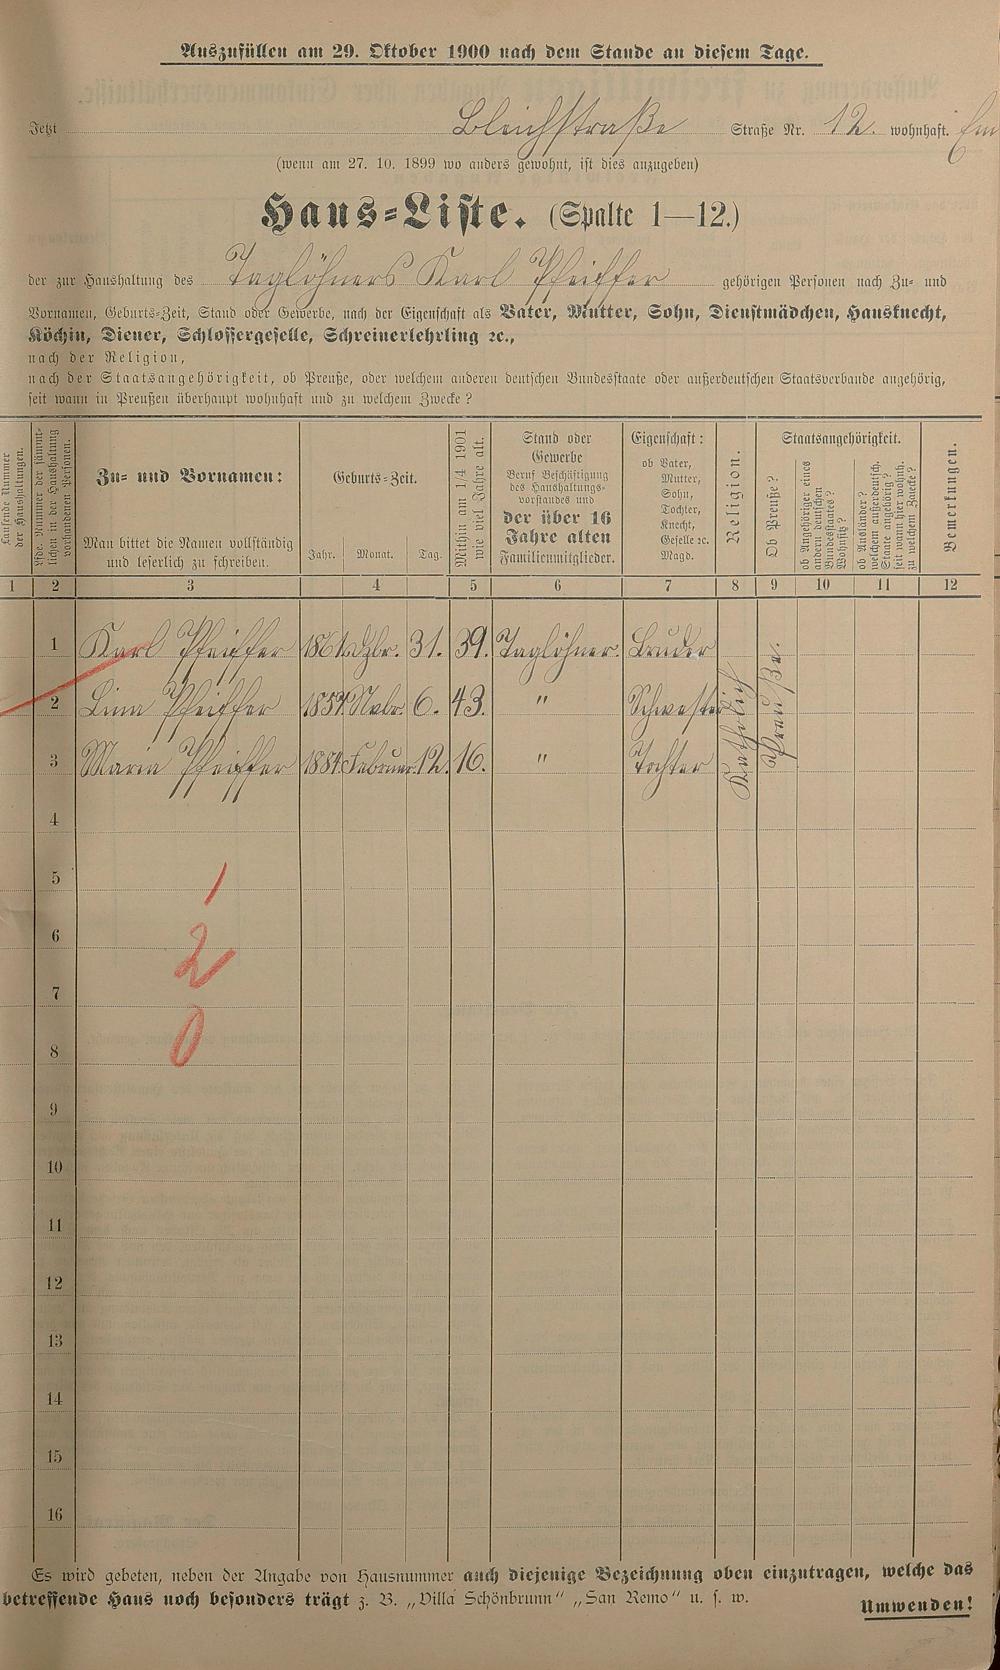 Auszufüllen am 29. Oktober 1900 nach dem Stande an diesem Tage.
Jetzt Bleichstraße Straße Nr. 12. wohnhaft.
(wenn am 27. 10. 1899 wo anders gewohnt, ist dies anzugeben)
Haus-Liste. (Spalte 1—12.)
der zur Haushaltung des Taglöhners Karl Pfeiffer gehörigen Personen nach Zu- und
Vornamen, Geburts-Zeit, Stand oder Gewerbe, nach der Eigenschaft als Vater, Mutter, Sohn, Dienstmädchen, Hausknecht,
Köchin, Diener, Schlossergeselle, Schreinerlehrling ꝛc.,
nach der Religion,
nach der Staatsangehörigkeit, ob Preuße, oder welchem anderen deutschen Bundesstaate oder außerdeutschen Staatsverbande angehörig,
seit wann in Preußen überhaupt wohnhaft und zu welchem Zwecke?
Laufende Nummer
der Haushaltungen.
Lfde. Nummer der sämmt-
lichen in der Haushaltung
vorhandenen Personen.
Zu- und Vornamen:
Man bittet die Namen vollständig
und leserlich zu schreiben.
Geburts-Zeit.
Jahr. Monat. Tag.
Mithin am 1/4 1901
wie viel Jahre alt.
Stand oder
Gewerbe
Beruf Beschäftigung
des Haushaltungs-
vorstandes und
der über 16
Jahre alten
Familienmitglieder.
Eigenschaft:
ob Vater,
Mutter,
Sohn,
Tochter,
Knecht,
Geselle ꝛc.
Magd.
Religion.
Staatsangehörigkeit.
Ob Preuße?
ob Angehöriger eines
andern deutschen
Bundesstaates?
Wohnsitz?
ob Ausländer?
welchem außerdeutsch.
Staate angehörig?
seit wann hier wohnh.
zu welchem Zwecke?
Bemerkungen.
1 2 3 4 5 6 7 8 9 10 11 12
1 Karl Pfeiffer 1861 Dzbr. 31. 39. Taglöhner. Bruder
2 Lina Pfeiffer 1857 Nvbr. 6. 43. " Schwester
3 Maria Pfeiffer 1884 Februar. 12. 16. " Tochter
Katholich
Preuße.
4
5
6
7
8
9
10
11
12
13
14
15
16
1
2
0
Es wird gebeten, neben der Angabe von Hausnummer auch diejenige Bezeichnung oben einzutragen, welche das
betreffende Haus noch besonders trägt z. B. „Villa Schönbrunn" „San Remo" u. s. w.
Umwenden!